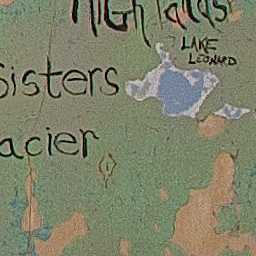 Highlands
LAKE
LEONARD
Sisters
acier